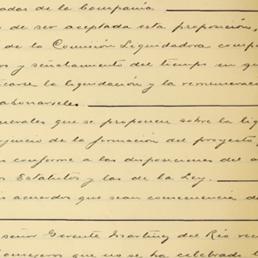 adas de la Compañia
de ser aceptada esta proposición,
de la Comisión Liquidadora comp
s y señalamiento del tiempo en qu
icarse la liquidación y la remunerac
abonarseles.
nerales que se proponen sobre la liq
juicio de la formación del proyecto
s conforme a las disposiciones del a
os Estatutos y las de la Ley.
s acuerdos que sean consecuencia de
señor Gerente Martinez del Rio
Consejeros que no se ha celebrado